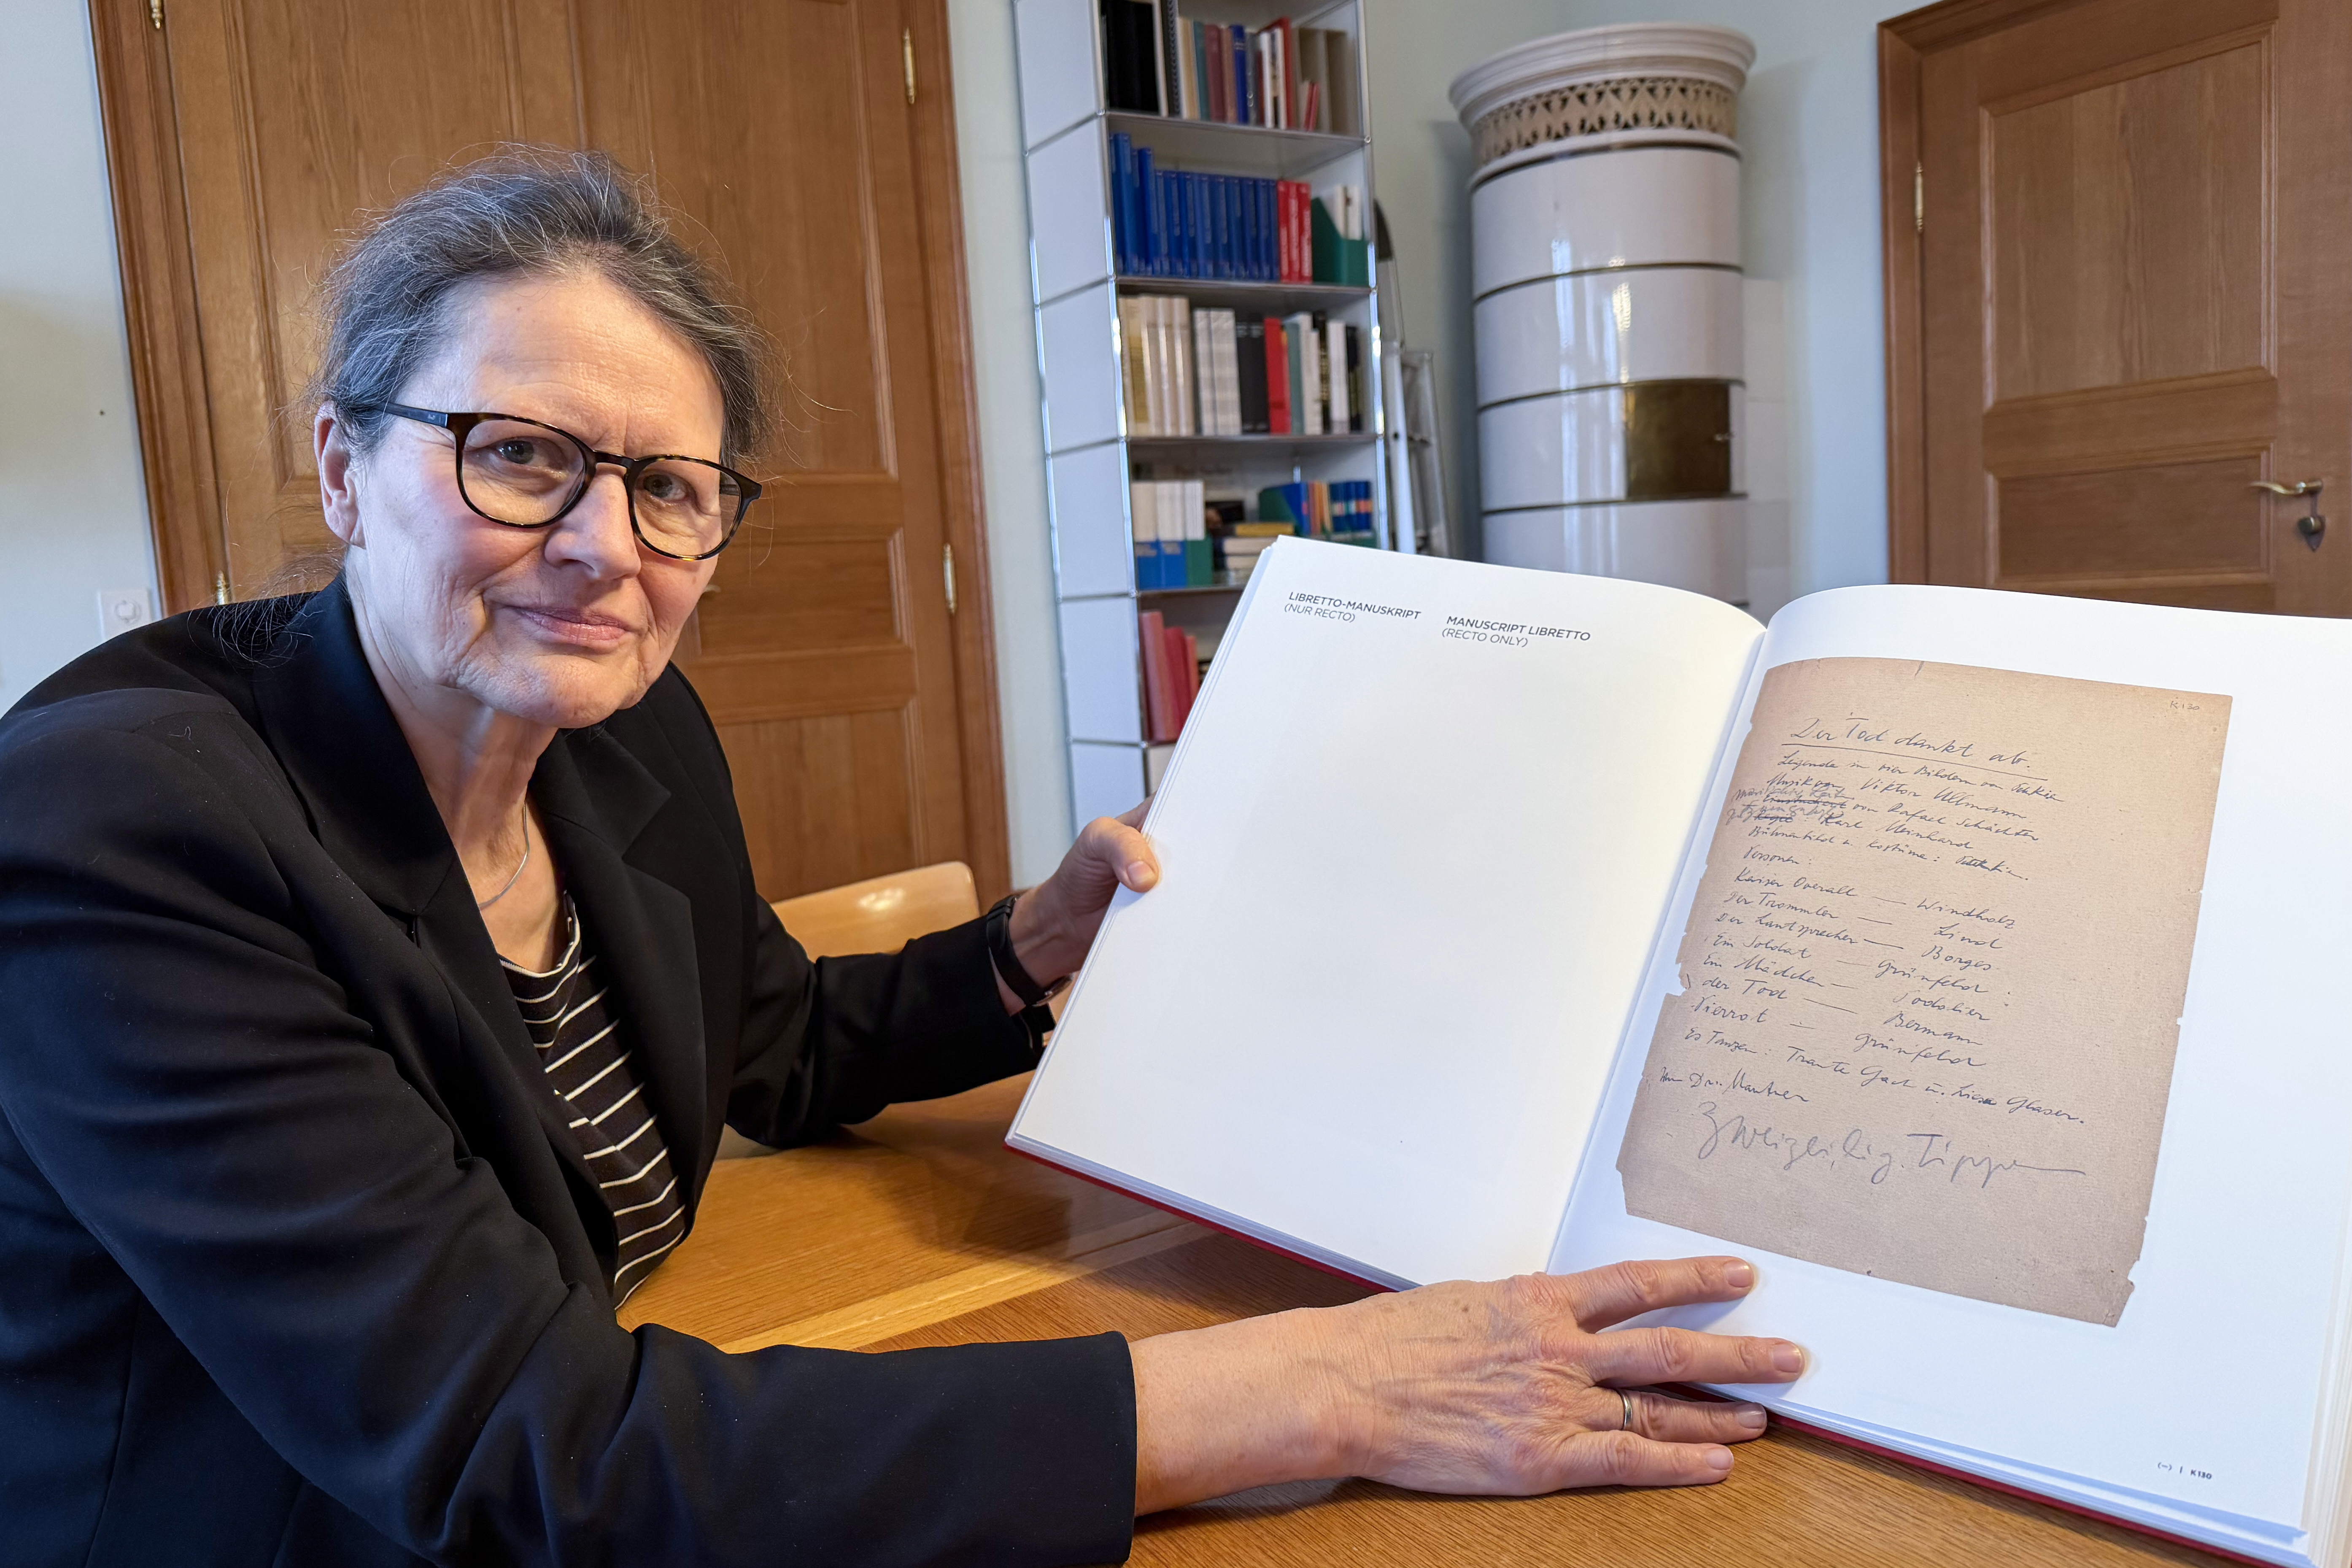 LIBRETTO-MANUSKRIPT
(NUR RECTO)
MANUSCRIPT LIBRETTO
(RECTO ONLY)
K 130
Der Tod dankt ab.
Legende in vier Bildern von
Musik von Viktor Ullmann
von Rafael Schächter
Karl Meinhard
Bühnenbild u. Kostüme:
Personen:
Kaiser Overall — Windholz
Der Trommler — Lind
Der Lautsprecher — Borges
Ein Soldat — Grünfeld
Ein Mädchen — Podolier
der Tod — Bermann
Pierrot — Grünfeld
Es Tanzen: Traute Gach u. Liese Glaser.
Mautner
Zweizeilig Tippen
(–) | K130